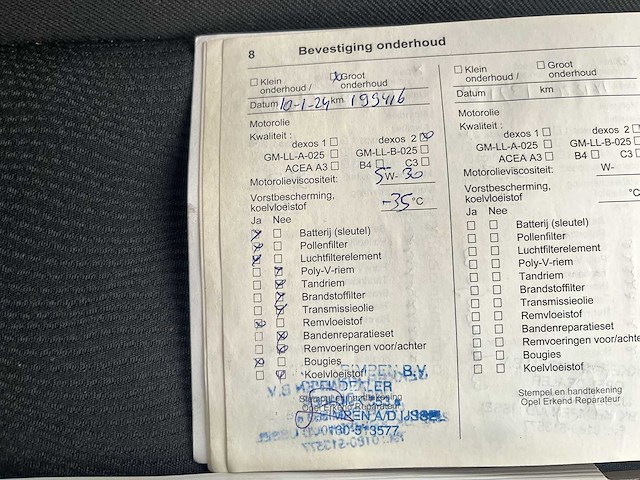 8 Bevestiging onderhoud
Klein onderhoud / Groot onderhoud
Datum 10-1-24 km 199416
Motorolie
Kwaliteit :
dexos 1 dexos 2
GM-LL-A-025 GM-LL-B-025
ACEA A3 B4 C3
Motorolieviscositeit: 5W-30
Vorstbescherming,
koelvloeistof -35 °C
Ja Nee
Batterij (sleutel)
Pollenfilter
Luchtfilterelement
Poly-V-riem
Tandriem
Brandstoffilter
Transmissieolie
Remvloeistof
Bandenreparatieset
Remvoeringen voor/achter
Bougies
Koelvloeistof
B.V.
DEALER
Stempel en handtekening
Opel Erkend Reparateur
A/D IJSSEL
513577
Klein onderhoud / Groot onderhoud
Datum km
Motorolie
Kwaliteit :
dexos 1 dexos 2
GM-LL-A-025 GM-LL-B-025
ACEA A3 B4 C3
Motorolieviscositeit: W-
Vorstbescherming,
koelvloeistof °C
Ja Nee
Batterij (sleutel)
Pollenfilter
Luchtfilterelement
Poly-V-riem
Tandriem
Brandstoffilter
Transmissieolie
Remvloeistof
Bandenreparatieset
Remvoeringen voor/achter
Bougies
Koelvloeistof
Stempel en handtekening
Opel Erkend Reparateur